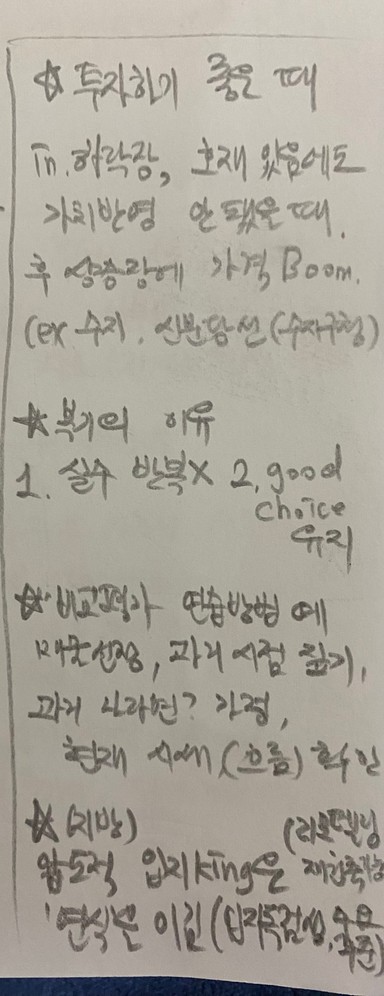 ☆ 투자하기 좋은 때
in. 하락장, 호재 있음에도
가치반영 안 됐을 때.
후 상승장에 가격 Boom.
(ex 수지. 신분당선 (수지구청)
☆ 복기의 이유
1. 실수 반복X 2. good
choice
유지
☆ 비교평가 연습방법 예
매물선정, 과거 시점 찾기,
과거 나라면? 가정,
현재 시세 (흐름) 확인
☆ (지방) (리모델링
압도적 입지king은 재건축가능
연식도 이김 (입지독점성, 수요
수준)